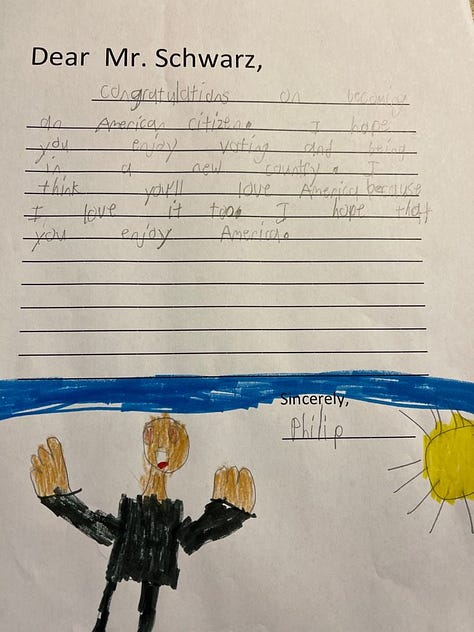 Dear Mr. Schwarz,
congratulations on becoming
an American citizen. I hope
you enjoy voting and being
in a new country. I
think you'll love America because
I love it too. I hope that
you enjoy America.
Sincerely,
Philip